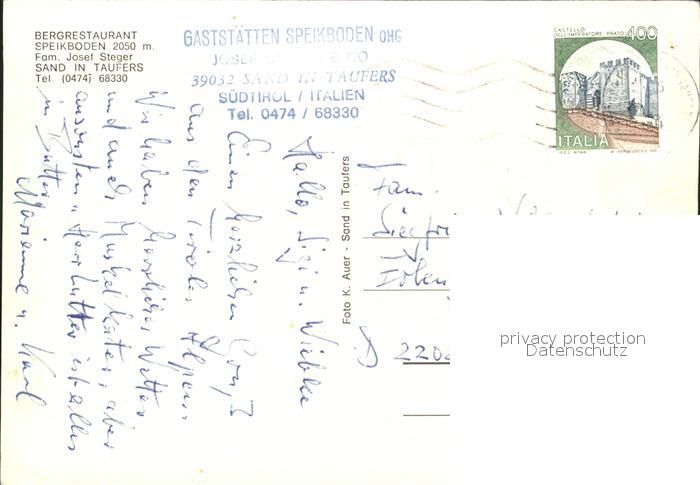 BERGRESTAURANT
SPEIKBODEN 2050 m.
Fam. Josef Steger
SAND IN TAUFERS
Tel. (0474) 68330
GASTSTÄTTEN SPEIKBODEN OHG
JOSEF & CO
39032 SAND IN TAUFERS
SÜDTIROL / ITALIEN
Tel. 0474 / 68330
CASTELLO
DELL'IMPERATORE PRATO 400
ITALIA
Hallo, Sigi u. Wiebke
Einen herzlichen Gruß
aus den Tiroler Alpen
Wir haben herrliches Wetter
und auch Muskelkater, aber
ansonsten u. Herr ist alles
in Butter
Marianne u. Karl
Foto K. Auer - Sand in Taufers
Fam.
Siegfri
D 220
privacy protection
Datenschutz